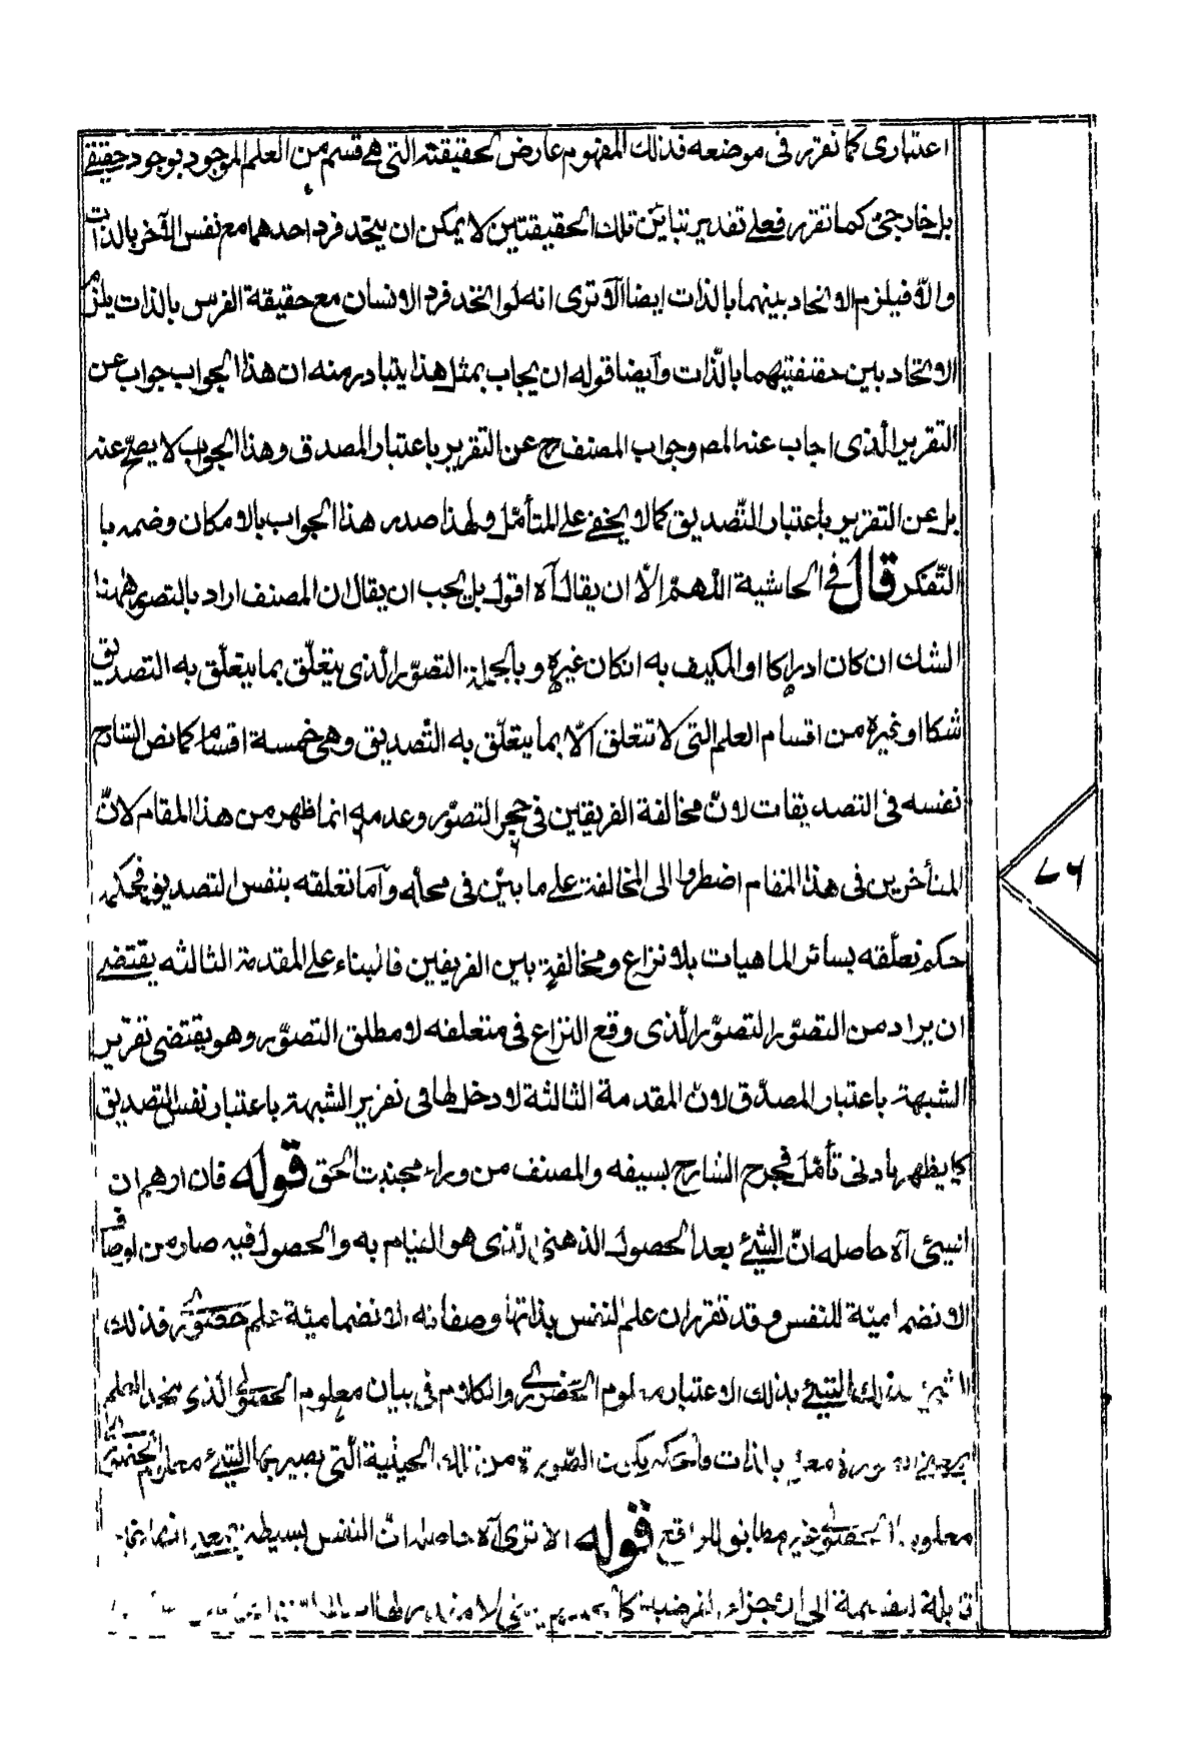 اعتباری کما تقرر فی موضعه فذلك المفهوم عارض لحقیقته التی هی قسم من العلم الموجود بوجود حقیقی
بل خارجی کما تقرر فعلی تقدیر تباین تلك الحقیقتین لا یمکن ان یتحد فرد احدهما مع نفس الآخر بالذات
والّا فیلزم الاتحاد بینهما بالذات ایضا الا تری انه لو اتخد فرد الانسان مع حقیقة الفرس بالذات یلزم
الاتحاد بین حقیقتیهما بالذّات وآیضا قوله ان یجاب بمثل هذا یتبادر منه ان هذا الجواب جواب عن
التقریر الّذی اجاب عنه المصـ وجواب المصنف رح عن التقریر باعتبار المصدق وهذا الجواب لا یصحّ عنه
بل عن التقریر باعتبار التّصدیق کما لا یخفی علی المتأمّل ولهذا صدر هذا الجواب بالامکان وضمه با
التّفکر قال فی الحاشیة اللّهمّ الّا ان یقال آه اقول بل یجب ان یقال ان المصنف اراد بالتصور ههنا
الشك ان کان ادراکا او المکیف به انکان غیره وبالجملة التصوّر الّذی یتعلّق بما یتعلّق به التصدیق
شکا او غیره من اقسام العلم التی لا تتعلق الّا بما یتعلّق به التّصدیق وهی خمسة اقسام کما نص الشارح
نفسه فی التصدیقات لانّ مخالفة الفریقین فی حجر التصوّر وعدمه انما ظهر من هذا المقام لانّ
المتأخرین فی هذا المقام اضطروا الی المخالفة علی ما بیّن فی محله وآما تعلقه بنفس التصدیق فحکمه
حکم تعلّقه بسائر الماهیات بلا نزاع ومخالفة بین الفریقین فالبناء علی المقدمة الثالثه یقتضی
ان یراد من التصوّر التصوّر الّذی وقع النزاع فی متعلقه لا مطلق التصوّر وهو یقتضی تقریر
الشبهة باعتبار المصدّق لانّ المقدمة الثالثة لا دخل لها فی تقریر الشبهة باعتبار نفس التصدیق
کما یظهر بادنی تأمّل فجرح الشارح بسیفه والمصنف من وراء الحق قوله فان اوهم ان
الشیئ آه حاصله انّ الشیئ بعد الحصول الذهنی الّذی هو القیام به والحصول فیه صار من اوصاف
الانضمامیّة للنفس وقد تقرر ان علم النفس بذاتها وصفاته الانضمامیّة علم حضوری فذلك
الشیئ بذلك الاعتبار معلوم الحضوری والکلام فی بیان معلوم الحصولی الّذی یتحد العلم
بالذات یکون الصّورة من تلك الحیثیة الّتی یصیر بها الشیئ معلوم
معلوم الحصولی غیر مطابق للواقع قوله الا تری آه حاصله انّ النفس بسیطة
قابلة القسمة الی الاجزاء
۶۷